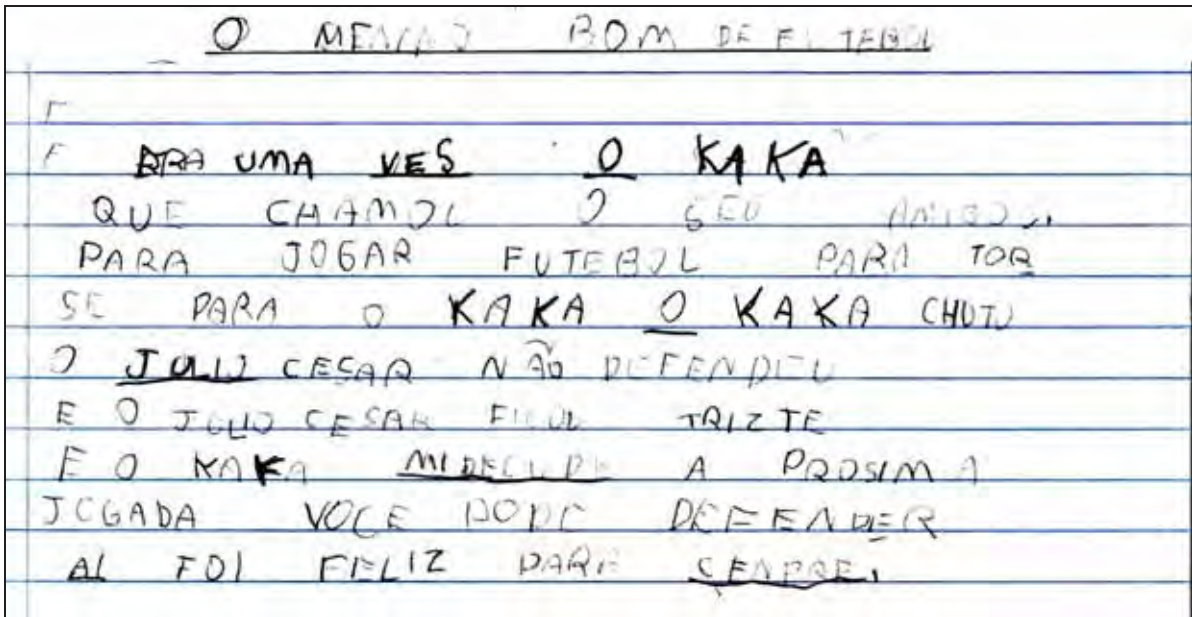 O MENINO BOM DE FUTEBOL
ERA UMA VES O KAKA
QUE CHAMOL O SEU AMIGO
PARA JOGAR FUTEBOL PARA TOR
SE PARA O KAKA O KAKA CHUTO
O JULIO CESAR NÃO DEFENDEU
E O JULIO CESAR FICOL TRIZTE
E O KAKA A PROSIMA
JOGADA VOCE PODE DEFENDER
AI FOI FELIZ PARA SENPRE.